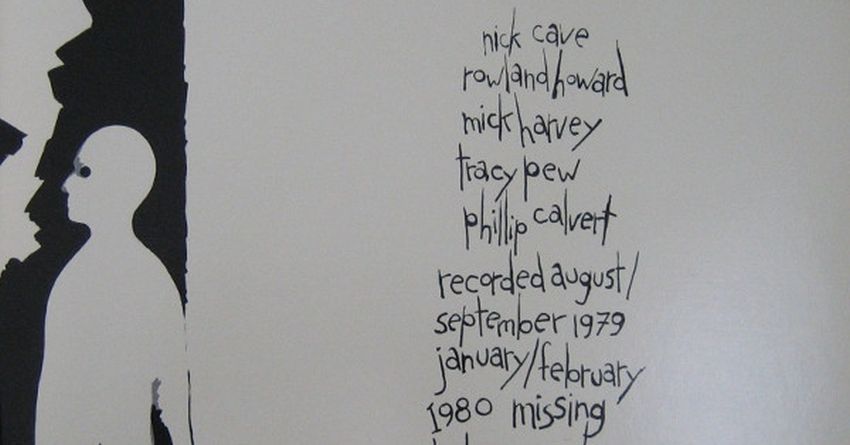 nick cave
rowland howard
mick harvey
tracy pew
phillip calvert
recorded august/
september 1979
january/february
1980 missing